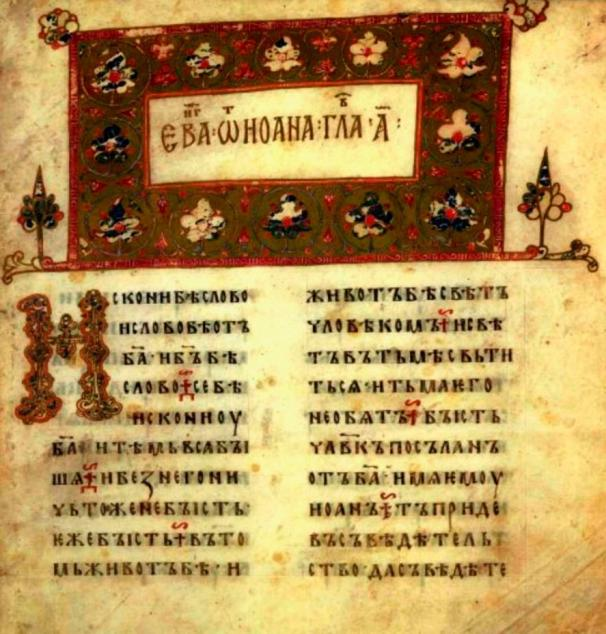 ЕВАНГ ѾТ ИОАНА · ГЛАВ · А҃ :
ИСКОНИ БѢ СЛОВО
И СЛОВО БѢ ОТЪ
Б҃А · И Б҃Ъ БѢ
СЛОВО СЕ БѢ
ИСКОНИ ОУ
Б҃А И ТѢМЬ ВСА БЫ
ША И БЕЗ НЕГО НИ
ЧЬТОЖЕ НЕ БЫСТЬ
ѤЖЕ БЫСТЬ ВЪ ТО
МЬ ЖИВОТЪ БѢ · И
ЖИВОТЪ БѢ СВѢТЪ
ЧЛОВѢКОМЪ И СВѢ
ТЪ ВЪ ТЬМѢ СВЬТИ
ТЬСѦ · И ТЬМА ѤГО
НЕ ОБѦТЪ БЫСТЬ
ЧЛ҃ВКЪ ПОСЪЛАНЪ
ОТЪ Б҃А · ИМѦ ѤМОУ
ИОАНЪ ТЪ ПРИДЕ
ВЪ СЪВѢДѢТЕЛЬ
СТВО ДА СЪВѢДѢТЕ